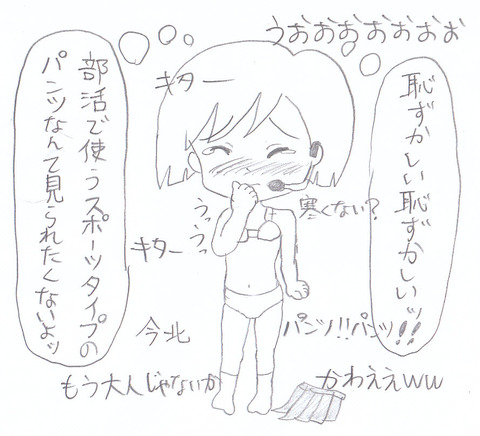 うおおおおおおお
キター
恥ずかしい恥ずかしいッ!!
部活で使うスポーツタイプの
パンツなんて見られたくないよッ
うっうっ
寒くない?
キター
今北
パンツ!!パンツ!!
もう大人じゃないか
かわええww